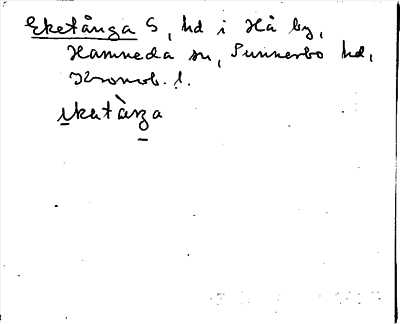 Eketånga S, hd i Hå by,
Hamneda sn, Sunnerbo hd,
Kronob. l.